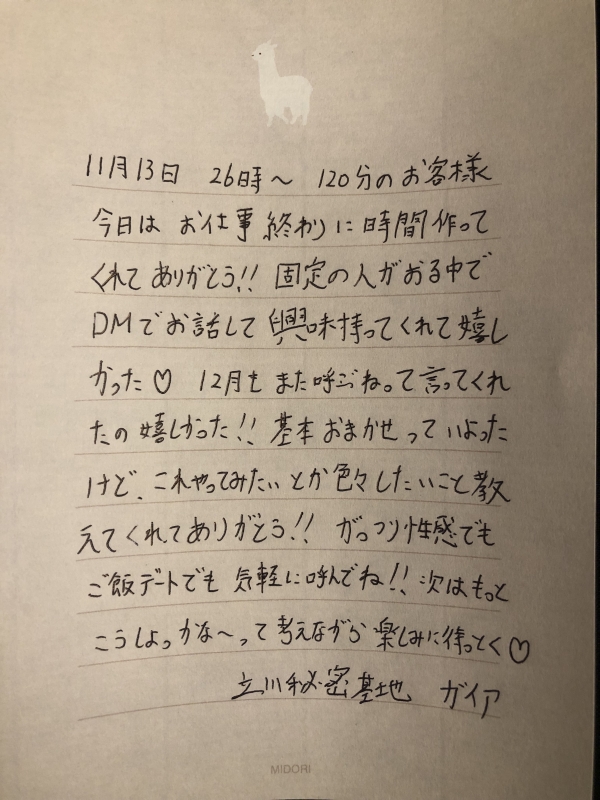 11月13日 26時〜 120分のお客様
今日は お仕事 終わりに時間作って
くれて ありがとう!! 固定の人がおる中で
DMでお話して 興味持ってくれて嬉し
かった♡ 12月も また呼ぶねって言ってくれ
たの嬉しかった!! 基本おまかせっていよった
けど、これやってみたい とか色々したいこと教
えてくれてありがとう!! がっつり性感でも
ご飯デートでも 気軽に呼んでね!! 次はもっと
こうしよっかな〜って考えながら 楽しみに待っとく♡
立川秘密基地 ガイア
MIDORI